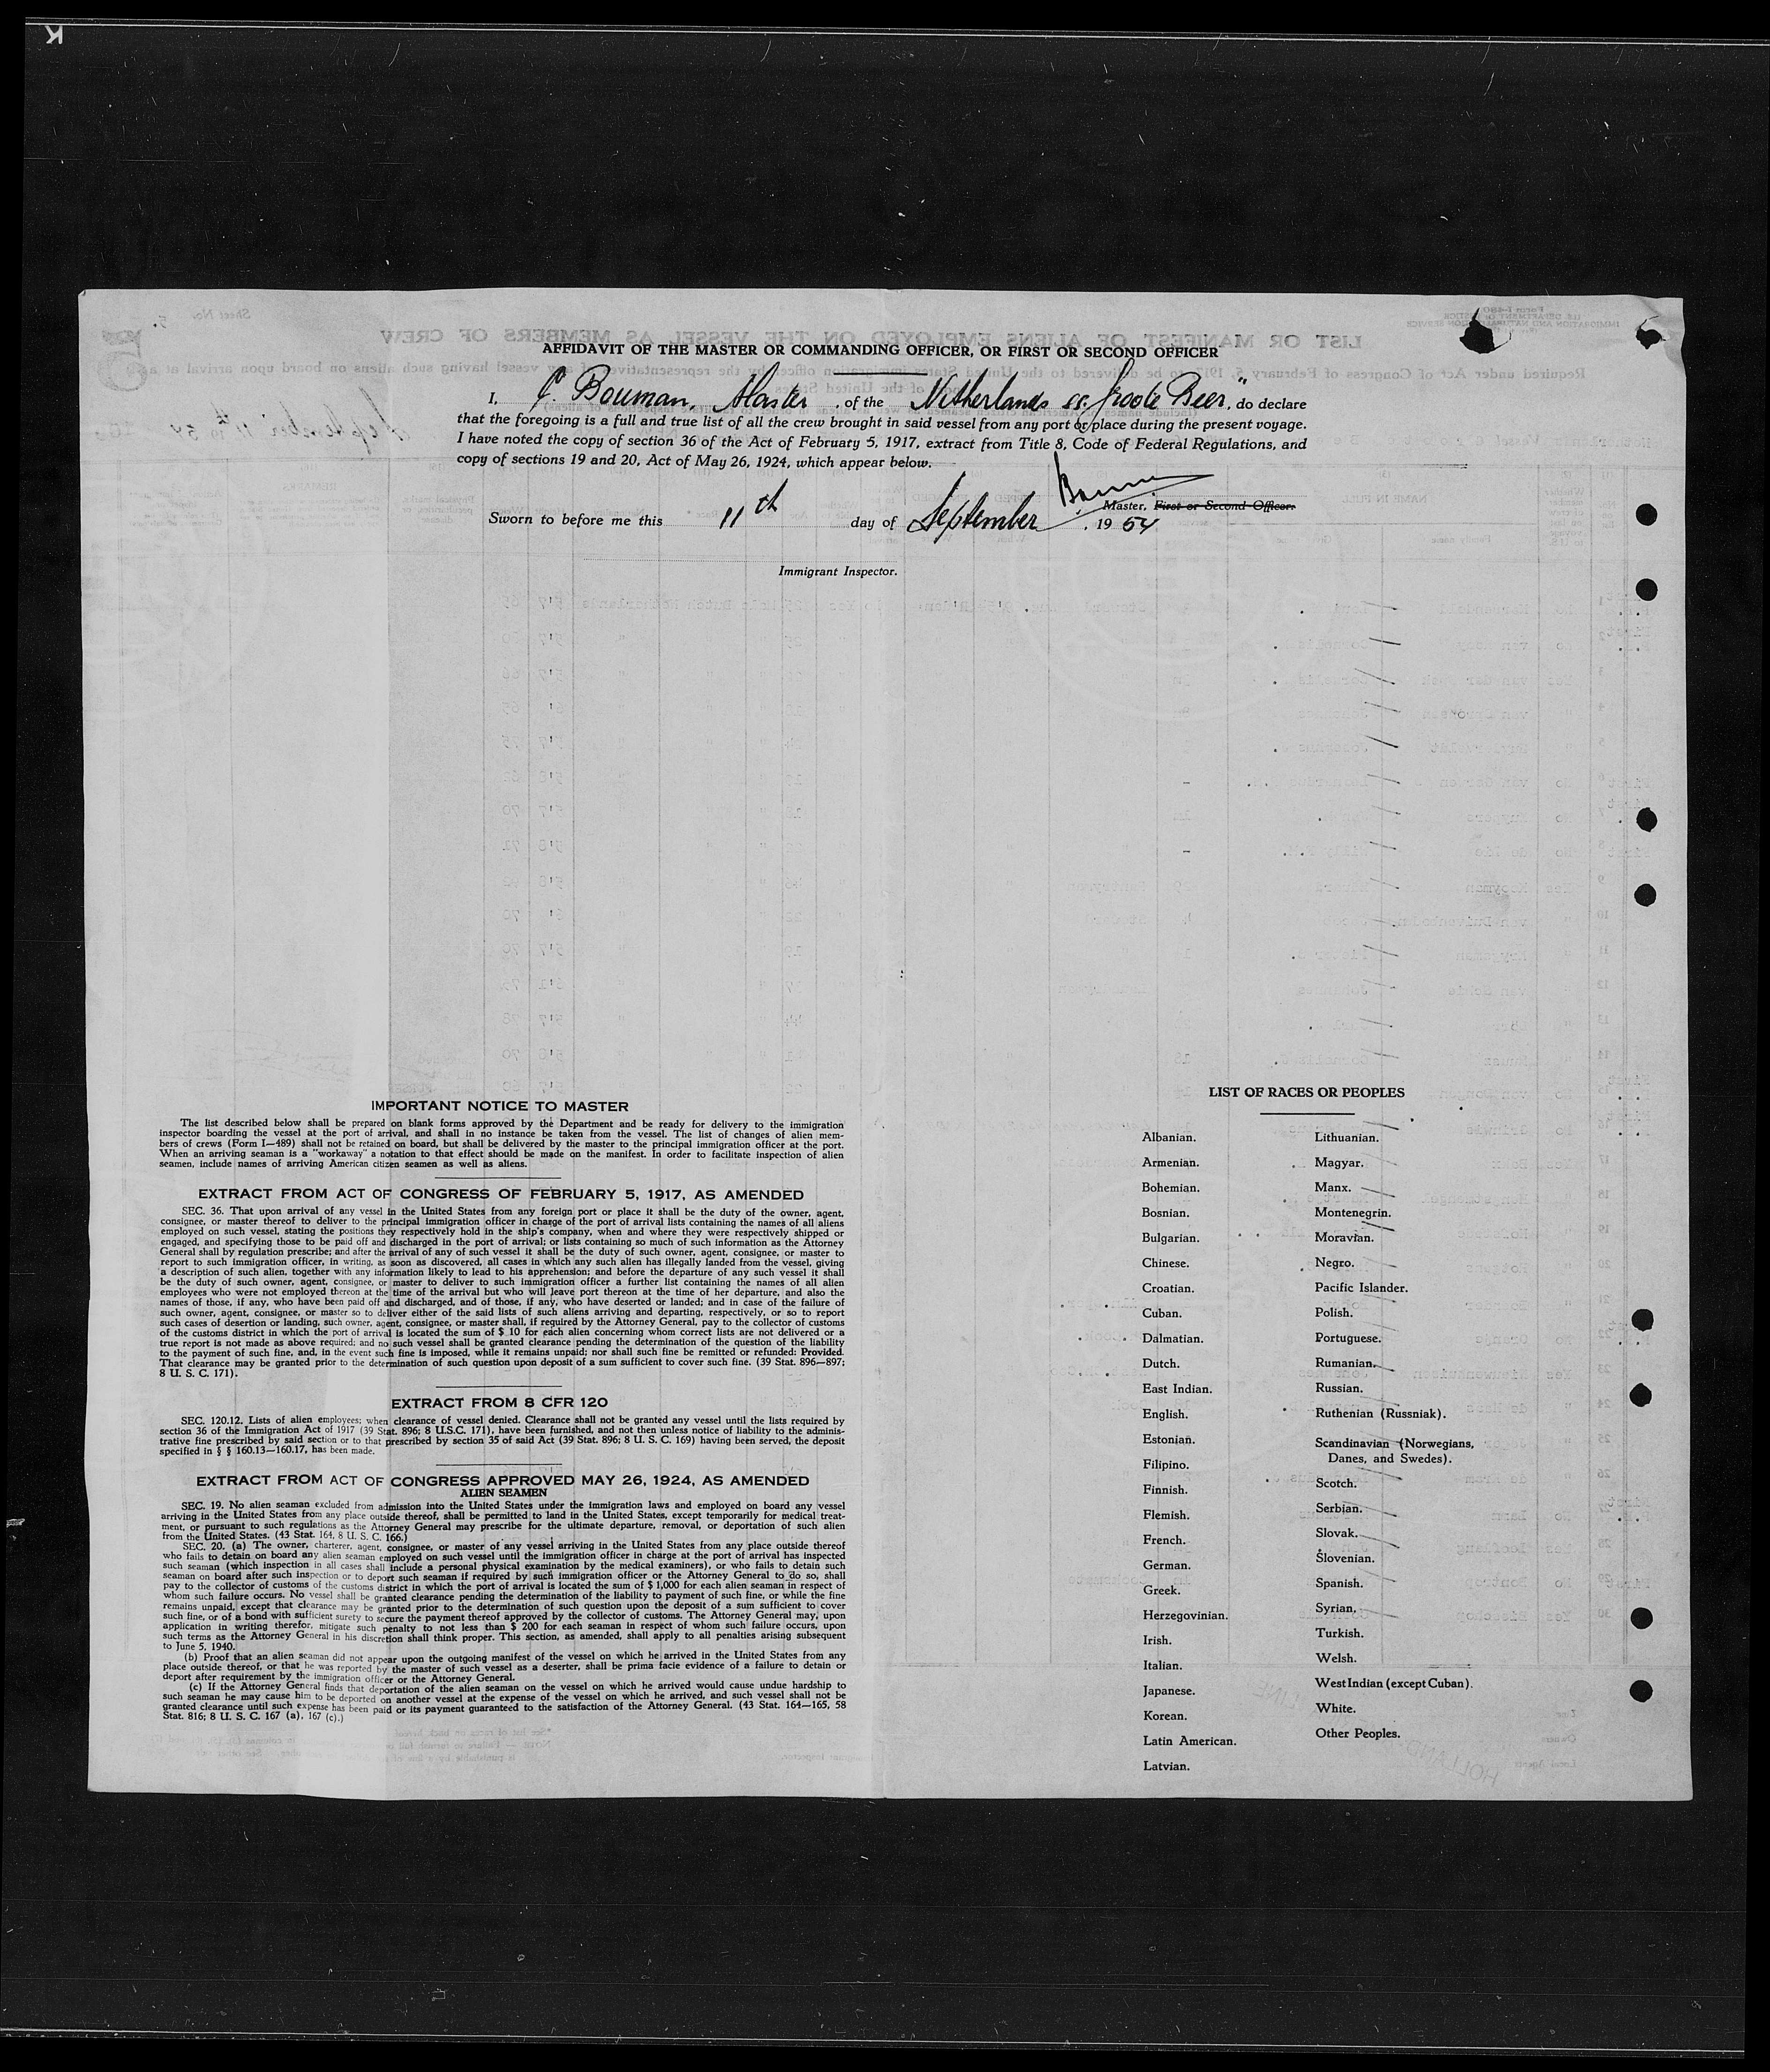 AFFIDAVIT OF THE MASTER OR COMMANDING OFFICER, OR FIRST OR SECOND OFFICER
I, C. Bouman, Master, of the Netherlands ss. Groote Beer", do declare
that the foregoing is a full and true list of all the crew brought in said vessel from any port or place during the present voyage.
I have noted the copy of section 36 of the Act of February 5, 1917, extract from Title 8, Code of Federal Regulations, and
copy of sections 19 and 20, Act of May 26, 1924, which appear below.
Bouman
Master, First or Second Officer.
Sworn to before me this 11th day of September, 1954
Immigrant Inspector.
IMPORTANT NOTICE TO MASTER
The list described below shall be prepared on blank forms approved by the Department and be ready for delivery to the immigration
inspector boarding the vessel at the port of arrival, and shall in no instance be taken from the vessel. The list of changes of alien mem-
bers of crews (Form I—489) shall not be retained on board, but shall be delivered by the master to the principal immigration officer at the port.
When an arriving seaman is a "workaway" a notation to that effect should be made on the manifest. In order to facilitate inspection of alien
seamen, include names of arriving American citizen seamen as well as aliens.
EXTRACT FROM ACT OF CONGRESS OF FEBRUARY 5, 1917, AS AMENDED
SEC. 36. That upon arrival of any vessel in the United States from any foreign port or place it shall be the duty of the owner, agent,
consignee, or master thereof to deliver to the principal immigration officer in charge of the port of arrival lists containing the names of all aliens
employed on such vessel, stating the positions they respectively hold in the ship's company, when and where they were respectively shipped or
engaged, and specifying those to be paid off and discharged in the port of arrival; or lists containing so much of such information as the Attorney
General shall by regulation prescribe; and after the arrival of any of such vessel it shall be the duty of such owner, agent, consignee, or master to
report to such immigration officer, in writing, as soon as discovered, all cases in which any such alien has illegally landed from the vessel, giving
a description of such alien, together with any information likely to lead to his apprehension; and before the departure of any such vessel it shall
be the duty of such owner, agent, consignee, or master to deliver to such immigration officer a further list containing the names of all alien
employees who were not employed thereon at the time of the arrival but who will leave port thereon at the time of her departure, and also the
names of those, if any, who have been paid off and discharged, and of those, if any, who have deserted or landed; and in case of the failure of
such owner, agent, consignee, or master so to deliver either of the said lists of such aliens arriving and departing, respectively, or so to report
such cases of desertion or landing, such owner, agent, consignee, or master shall, if required by the Attorney General, pay to the collector of customs
of the customs district in which the port of arrival is located the sum of $ 10 for each alien concerning whom correct lists are not delivered or a
true report is not made as above required; and no such vessel shall be granted clearance pending the determination of the question of the liability
to the payment of such fine, and, in the event such fine is imposed, while it remains unpaid; nor shall such fine be remitted or refunded: Provided.
That clearance may be granted prior to the determination of such question upon deposit of a sum sufficient to cover such fine. (39 Stat. 896—897;
8 U. S. C. 171).
EXTRACT FROM 8 CFR 120
SEC. 120.12. Lists of alien employees; when clearance of vessel denied. Clearance shall not be granted any vessel until the lists required by
section 36 of the Immigration Act of 1917 (39 Stat. 896; 8 U.S.C. 171), have been furnished, and not then unless notice of liability to the adminis-
trative fine prescribed by said section or to that prescribed by section 35 of said Act (39 Stat. 896; 8 U. S. C. 169) having been served, the deposit
specified in § § 160.13—160.17, has been made.
EXTRACT FROM ACT OF CONGRESS APPROVED MAY 26, 1924, AS AMENDED
ALIEN SEAMEN
SEC. 19. No alien seaman excluded from admission into the United States under the immigration laws and employed on board any vessel
arriving in the United States from any place outside thereof, shall be permitted to land in the United States, except temporarily for medical treat-
ment, or pursuant to such regulations as the Attorney General may prescribe for the ultimate departure, removal, or deportation of such alien
from the United States. (43 Stat. 164, 8 U. S. C. 166.)
SEC. 20. (a) The owner, charterer, agent, consignee, or master of any vessel arriving in the United States from any place outside thereof
who fails to detain on board any alien seaman employed on such vessel until the immigration officer in charge at the port of arrival has inspected
such seaman (which inspection in all cases shall include a personal physical examination by the medical examiners), or who fails to detain such
seaman on board after such inspection or to deport such seaman if required by such immigration officer or the Attorney General to do so, shall
pay to the collector of customs of the customs district in which the port of arrival is located the sum of $ 1,000 for each alien seaman in respect of
whom such failure occurs. No vessel shall be granted clearance pending the determination of the liability to payment of such fine, or while the fine
remains unpaid, except that clearance may be granted prior to the determination of such question upon the deposit of a sum sufficient to cover
such fine, or of a bond with sufficient surety to secure the payment thereof approved by the collector of customs. The Attorney General may, upon
application in writing therefor, mitigate such penalty to not less than $ 200 for each seaman in respect of whom such failure occurs, upon
such terms as the Attorney General in his discretion shall think proper. This section, as amended, shall apply to all penalties arising subsequent
to June 5, 1940.
(b) Proof that an alien seaman did not appear upon the outgoing manifest of the vessel on which he arrived in the United States from any
place outside thereof, or that he was reported by the master of such vessel as a deserter, shall be prima facie evidence of a failure to detain or
deport after requirement by the immigration officer or the Attorney General.
(c) If the Attorney General finds that deportation of the alien seaman on the vessel on which he arrived would cause undue hardship to
such seaman he may cause him to be deported on another vessel at the expense of the vessel on which he arrived, and such vessel shall not be
granted clearance until such expense has been paid or its payment guaranteed to the satisfaction of the Attorney General. (43 Stat. 164—165, 58
Stat. 816; 8 U. S. C. 167 (a), 167 (c).)
LIST OF RACES OR PEOPLES
Albanian.
Armenian.
Bohemian.
Bosnian.
Bulgarian.
Chinese.
Croatian.
Cuban.
Dalmatian.
Dutch.
East Indian.
English.
Estonian.
Filipino.
Finnish.
Flemish.
French.
German.
Greek.
Herzegovinian.
Irish.
Italian.
Japanese.
Korean.
Latin American.
Latvian.
Lithuanian.
Magyar.
Manx.
Montenegrin.
Moravian.
Negro.
Pacific Islander.
Polish.
Portuguese.
Rumanian.
Russian.
Ruthenian (Russniak).
Scandinavian (Norwegians,
Danes, and Swedes).
Scotch.
Serbian.
Slovak.
Slovenian.
Spanish.
Syrian.
Turkish.
Welsh.
West Indian (except Cuban).
White.
Other Peoples.